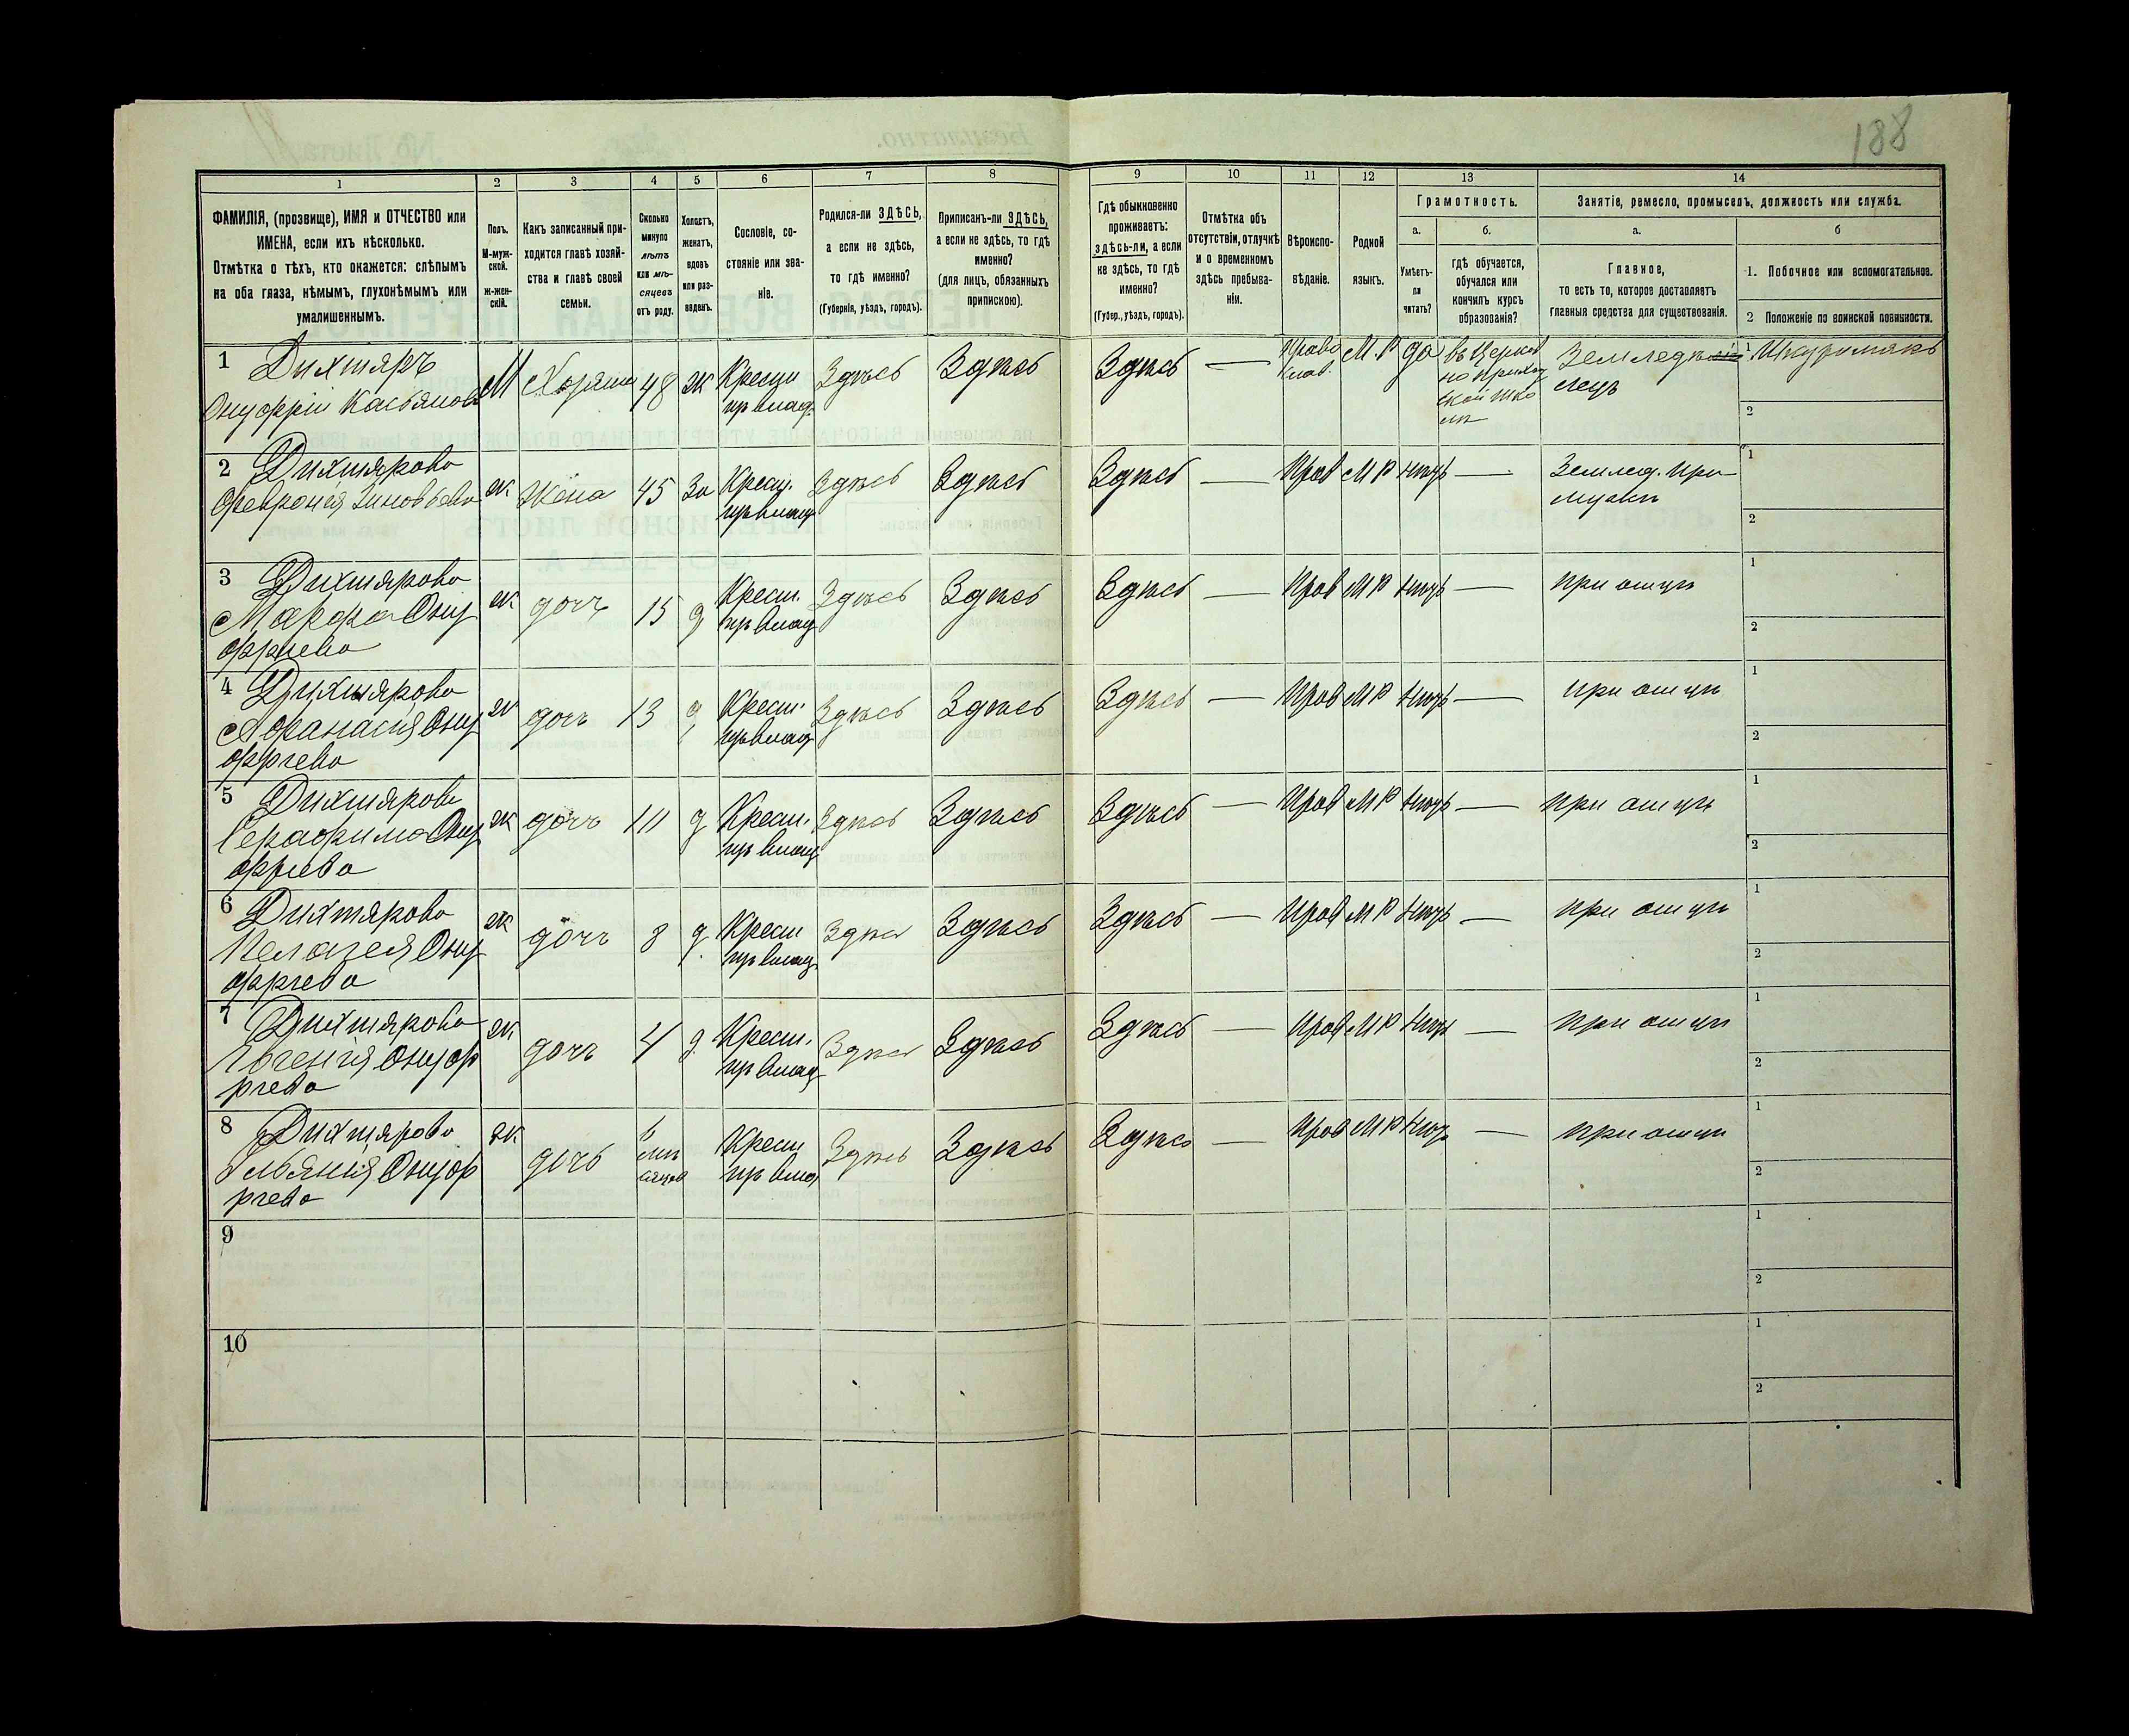 188
1 2 3 4 5 6 7 8 9 10 11 12 13 14
ФАМИЛІЯ, (прозвище), ИМЯ и ОТЧЕСТВО или
ИМЕНА, если ихъ нѣсколько.
Отмѣтка о тѣхъ, кто окажется: слѣпымъ
на оба глаза, нѣмымъ, глухонѣмымъ или
умалишеннымъ.
Полъ.
М-муж-
ской.
ж-жен-
скій.
Какъ записанный при-
ходится главѣ хозяй-
ства и главѣ своей
семьи.
Сколько
минуло
лѣтъ
или мѣ-
сяцевъ
отъ роду.
Холостъ,
женатъ,
вдовъ
или раз-
веденъ.
Сословіе, со-
стояніе или зва-
ніе.
Родился-ли ЗДѢСЬ,
а если не здѣсь,
то гдѣ именно?
(Губернія, уѣздъ, городъ).
Приписанъ-ли ЗДѢСЬ,
а если не здѣсь, то гдѣ
именно?
(для лицъ, обязанныхъ
припискою).
Гдѣ обыкновенно
проживаетъ:
здѣсь-ли, а если
не здѣсь, то гдѣ
именно?
(Губер., уѣздъ, городъ).
Отмѣтка объ
отсутствіи, отлучкѣ
и о временномъ
здѣсь пребыва-
ніи.
Вѣроиспо-
вѣданіе.
Родной
языкъ.
Грамотность.
а.
Умѣетъ-
ли
читать?
б.
гдѣ обучается,
обучался или
кончилъ курсъ
образованія?
Занятіе, ремесло, промыселъ, должность или служба.
а.
Главное,
то есть то, которое доставляетъ
главныя средства для существованія.
б
1. Побочное или вспомогательное.
2 Положеніе по воинской повинности.
1 Дихтяръ
Онуфрій Касьяновъ
М Хозяинъ 48 ж Крестья
пр влад. Здѣсь Здѣсь Здѣсь — Право
слав. М.Р да въ церков
но приход
ской шко
лѣ
Земледѣ
лецъ
2
2 Дихтярова
Феврония Зиновьева
ж Жена 45 За Крест.
пр влад Здѣсь Здѣсь Здѣсь — Прав М Р нѣтъ — Землед. при
мужѣ
1
2
3 Дихтярова
Марфа Ону
фріева
ж дочь 15 д Крест.
пр влад Здѣсь Здѣсь Здѣсь — Прав М Р нѣтъ — при отцѣ
1
2
4 Дихтярова
Афанасія Ону
фріева
ж дочь 13 д Крест.
пр влад Здѣсь Здѣсь Здѣсь — Прав М Р нѣтъ — при отцѣ
1
2
5 Дихтярова
Серафима Ону
фріева
ж дочь д Крест.
пр влад Здѣсь Здѣсь Здѣсь — Прав М Р нѣтъ — при отцѣ
1
2
6 Дихтярова
Пелагея Ону
фріева
ж дочь 8 д. Крест
пр влад Здѣсь Здѣсь Здѣсь — Прав М Р нѣтъ — при отцѣ
1
2
7 Дихтярова
Евгенія Онуф
ріева
ж дочь 4 д. Крест.
пр влад Здѣсь Здѣсь Здѣсь — Прав М Р нѣтъ — при отцѣ
1
2
8 Дихтярова
Онуф
ріева
ж дочь мѣ
сяцев Крест
пр вла Здѣсь Здѣсь Здѣсь — Прав М Р нѣтъ — при отцѣ
1
2
9
1
2
10
1
2